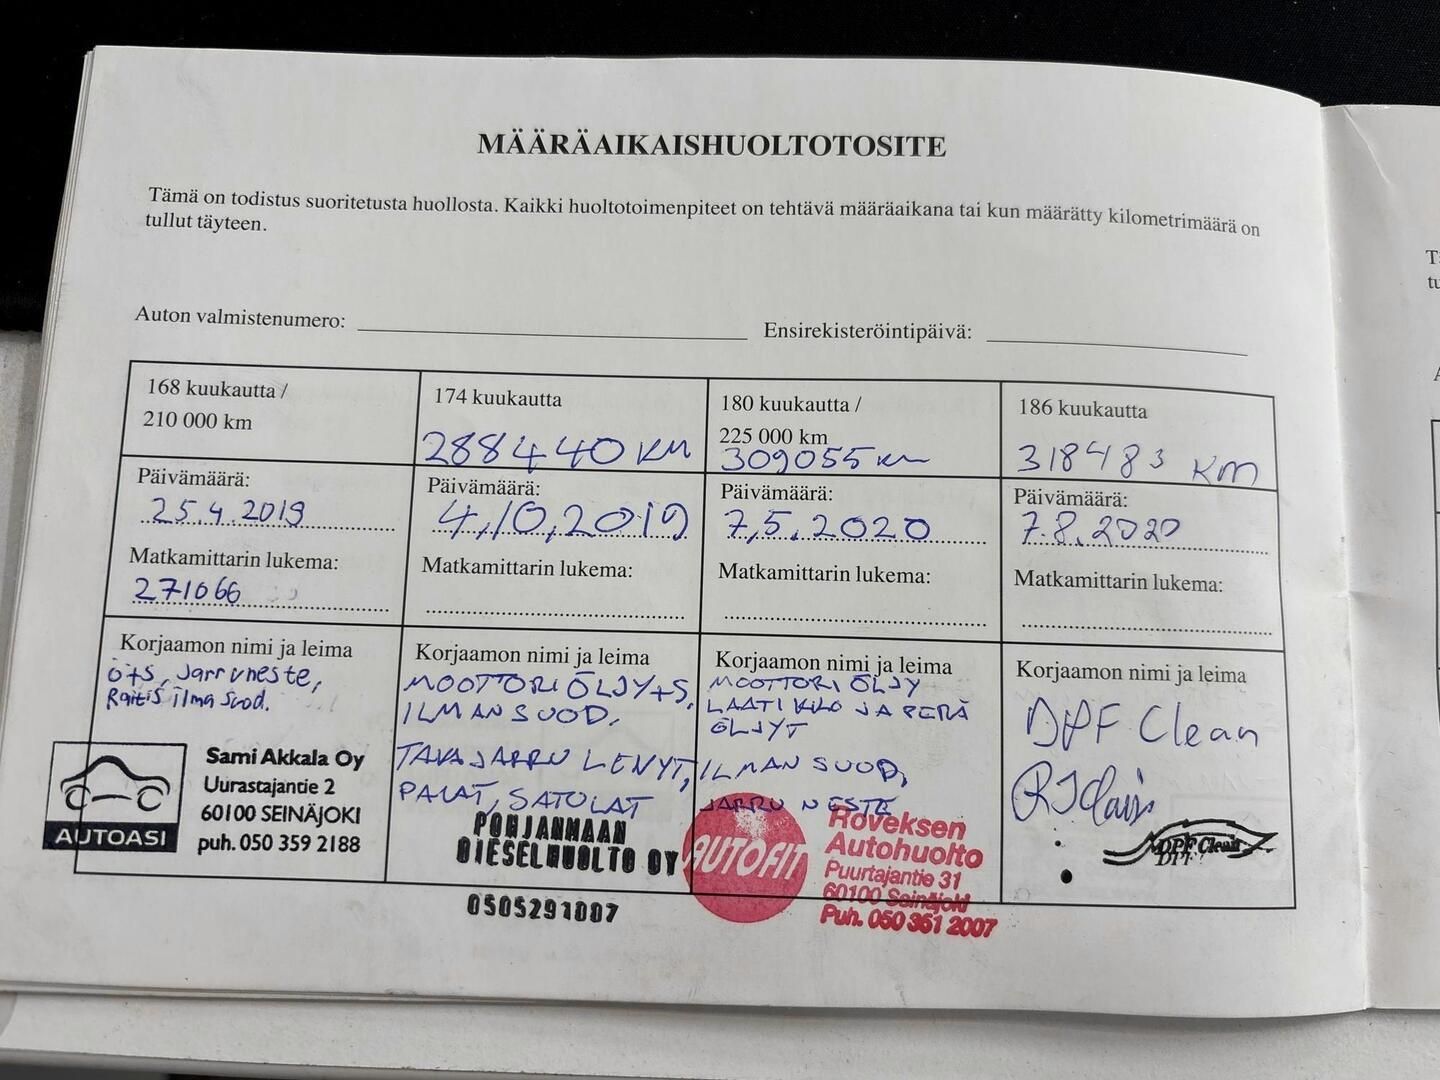 MÄÄRÄAIKAISHUOLTOTOSITE
Tämä on todistus suoritetusta huollosta. Kaikki huoltotoimenpiteet on tehtävä määräaikana tai kun määrätty kilometrimäärä on
tullut täyteen.
Auton valmistenumero:
Ensirekisteröintipäivä:
168 kuukautta /
210 000 km
Päivämäärä:
25.4.2019
Matkamittarin lukema:
271066
Korjaamon nimi ja leima
ö+s, Jarruneste,
Raitis ilma suod.
Sami Akkala Oy
Uurastajantie 2
60100 SEINÄJOKI
puh. 050 359 2188
AUTOASI
174 kuukautta
288440 KM
Päivämäärä:
4,10,2019
Matkamittarin lukema:
Korjaamon nimi ja leima
MOOTTORI ÖLJY+S,
ILMANSUOD,
TAKAJARRU LEVYT,
PALAT, SATULAT
POHJANMAAN
DIESELHUOLTO OY
0505291007
180 kuukautta /
225 000 km
309055 km
Päivämäärä:
7,5,2020
Matkamittarin lukema:
Korjaamon nimi ja leima
MOOTTORI ÖLJY
LAATIKKO JA PERÄ
ÖLJYT
ILMAN SUOD,
JARRU NESTE
AUTOFIT
Roveksen
Autohuolto
Puurtajantie 31
60100 Seinäjoki
Puh. 050 361 2007
186 kuukautta
318483 KM
Päivämäärä:
7.8.2020
Matkamittarin lukema:
Korjaamon nimi ja leima
DPF Clean
DPF Clean
DPF